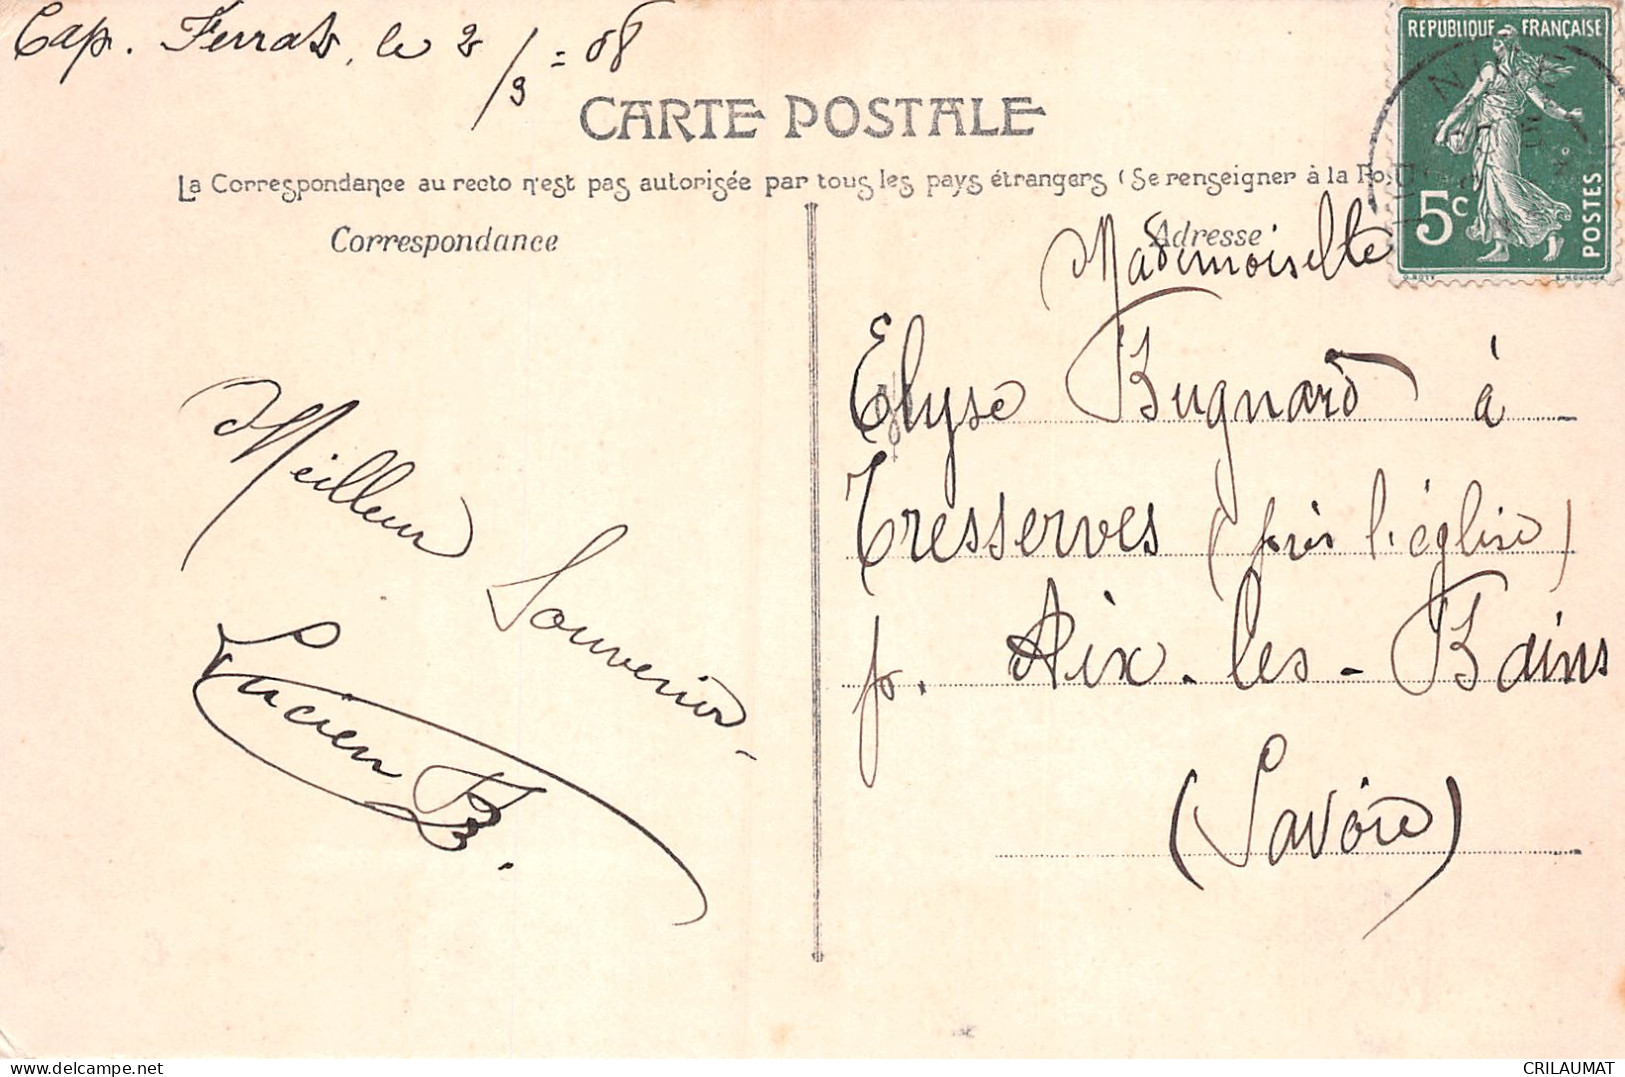 Cap. Ferrat, le 2/3 = 08
RÉPUBLIQUE FRANÇAISE
5c POSTES
CARTE POSTALE
La Correspondance au recto n'est pas autorisée par tous les pays étrangers (Se renseigner à la Po
Correspondance
Adresse
Mademoiselle
Elyse Bugnard à
Tresserves (près l'église)
p. Aix-les-Bains
(Savoie)
Meilleur
Souvenir
Lucien B.
CRILAUMAT